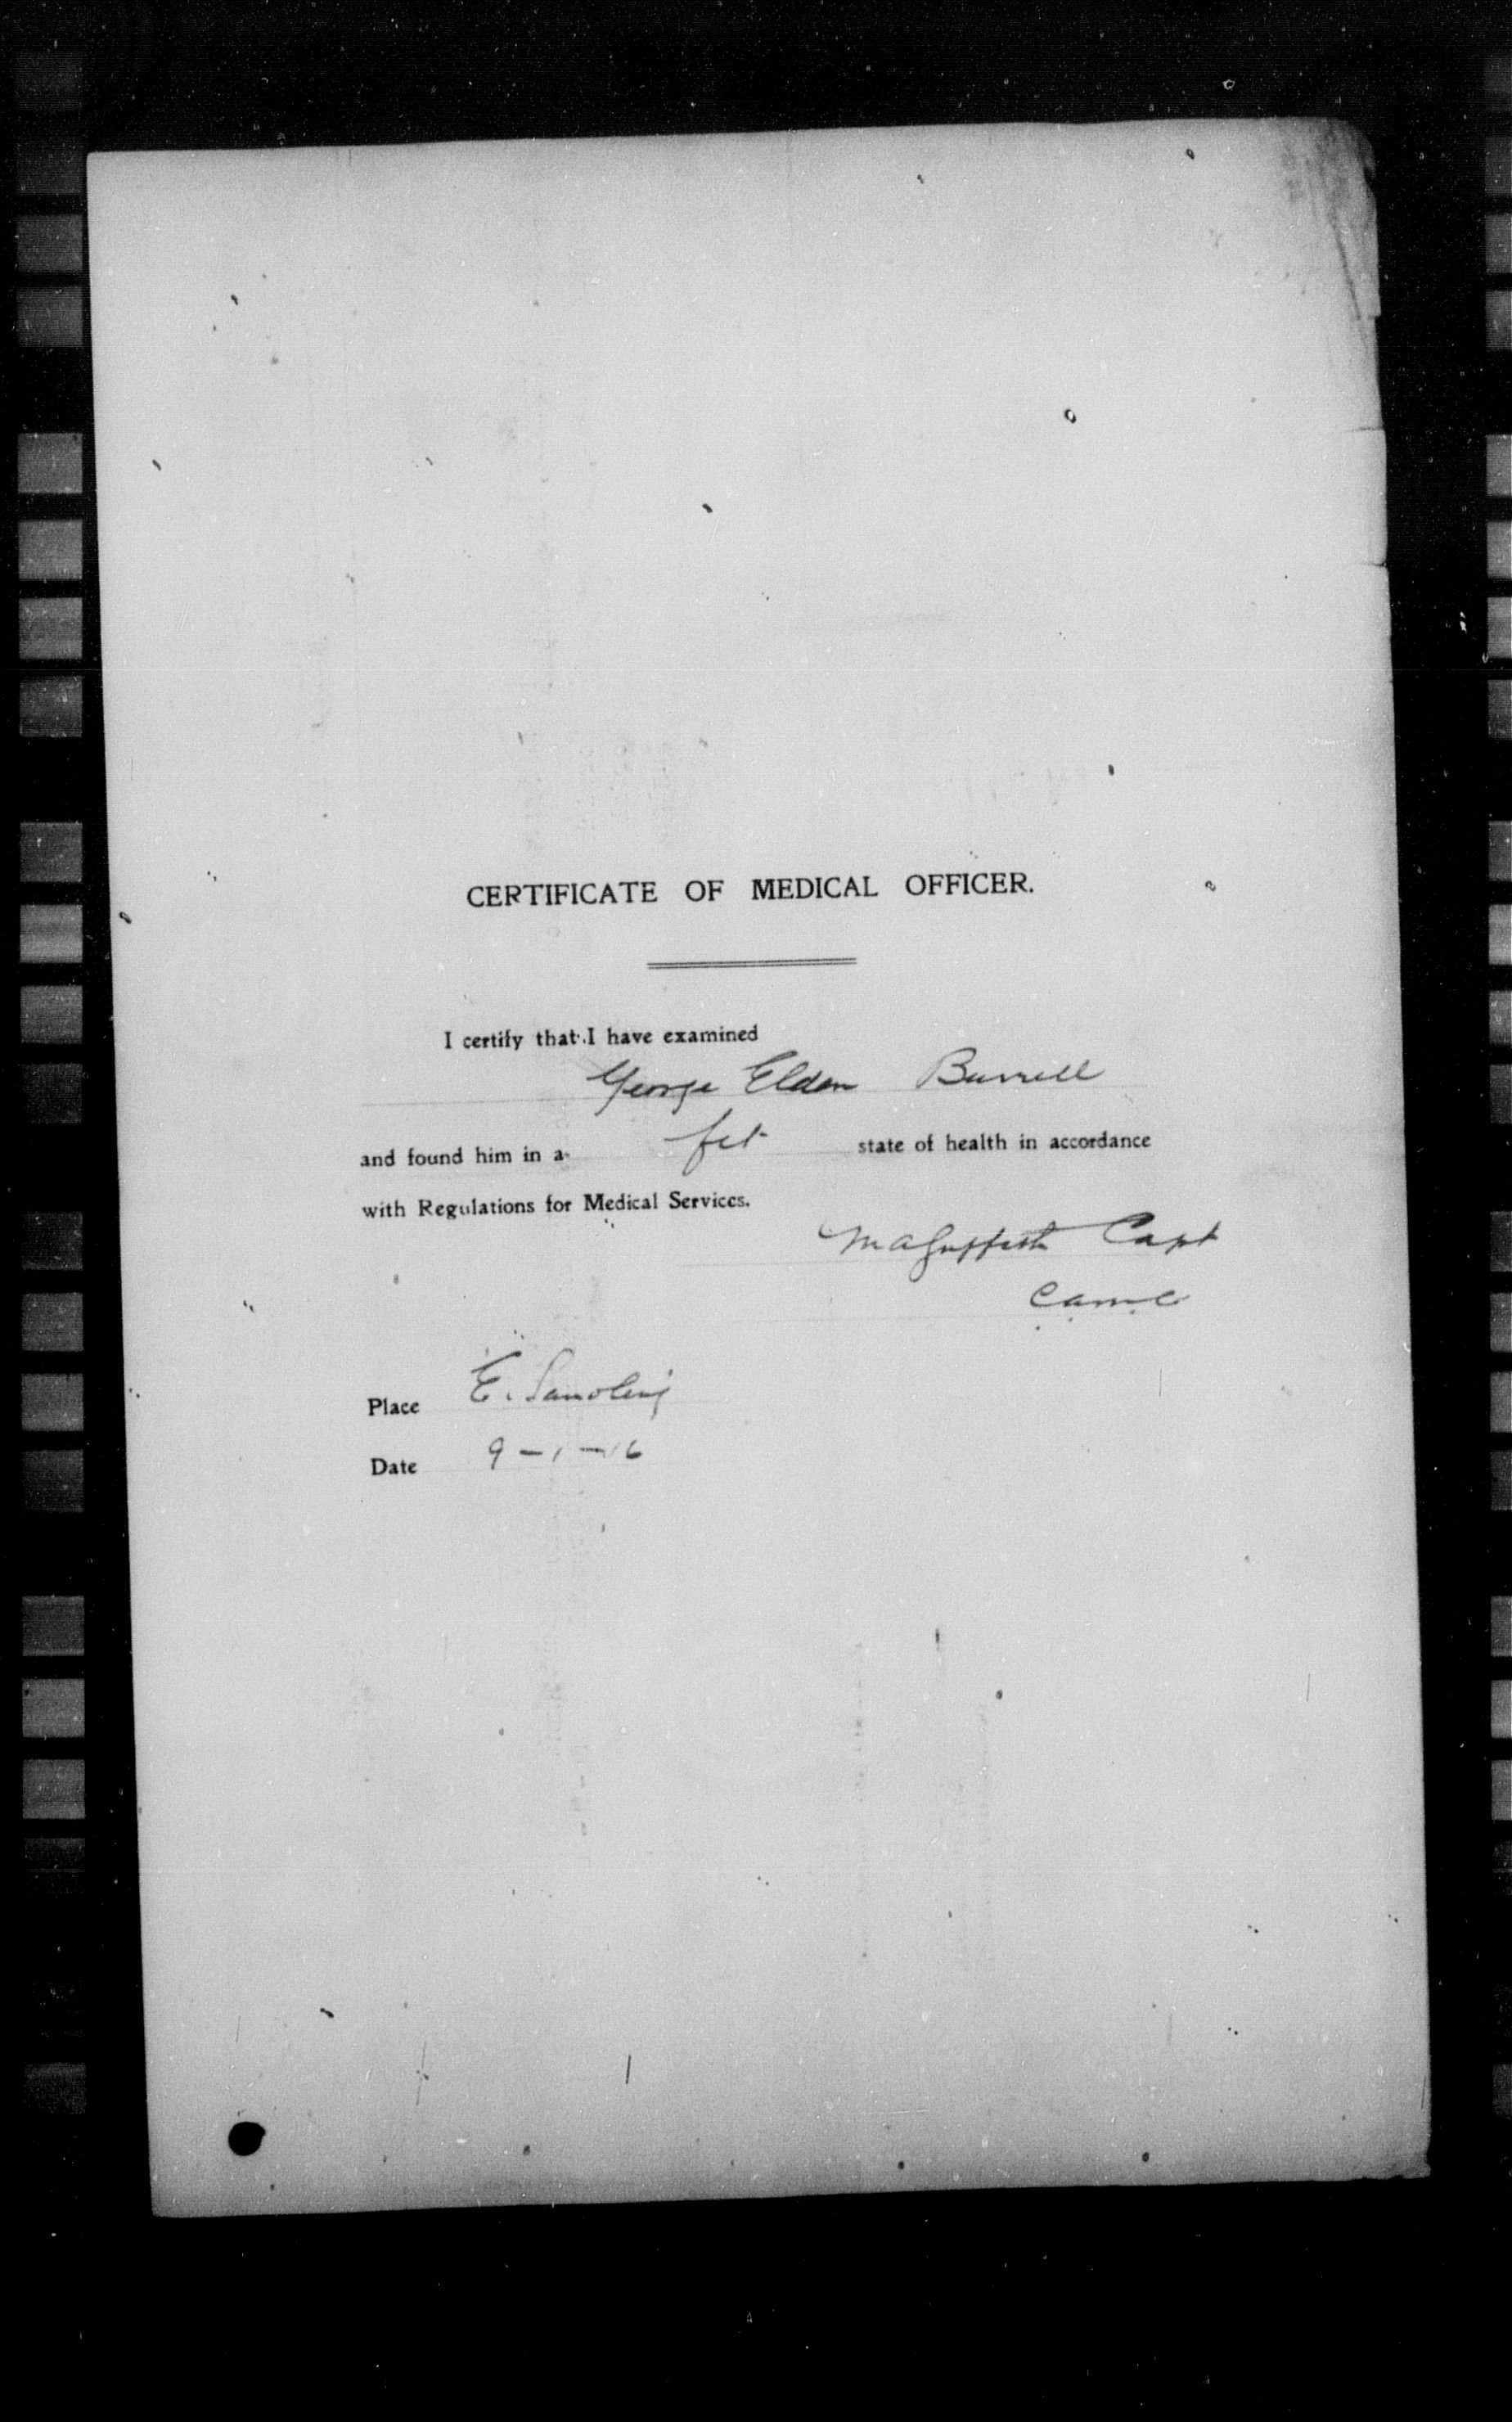 CERTIFICATE OF MEDICAL OFFICER.
I certify that I have examined
George Eldon Burrell
and found him in a fit state of health in accordance
with Regulations for Medical Services.
M A Griffith Capt
C.A.M.C
Place E. Sandling
Date 9-1-16